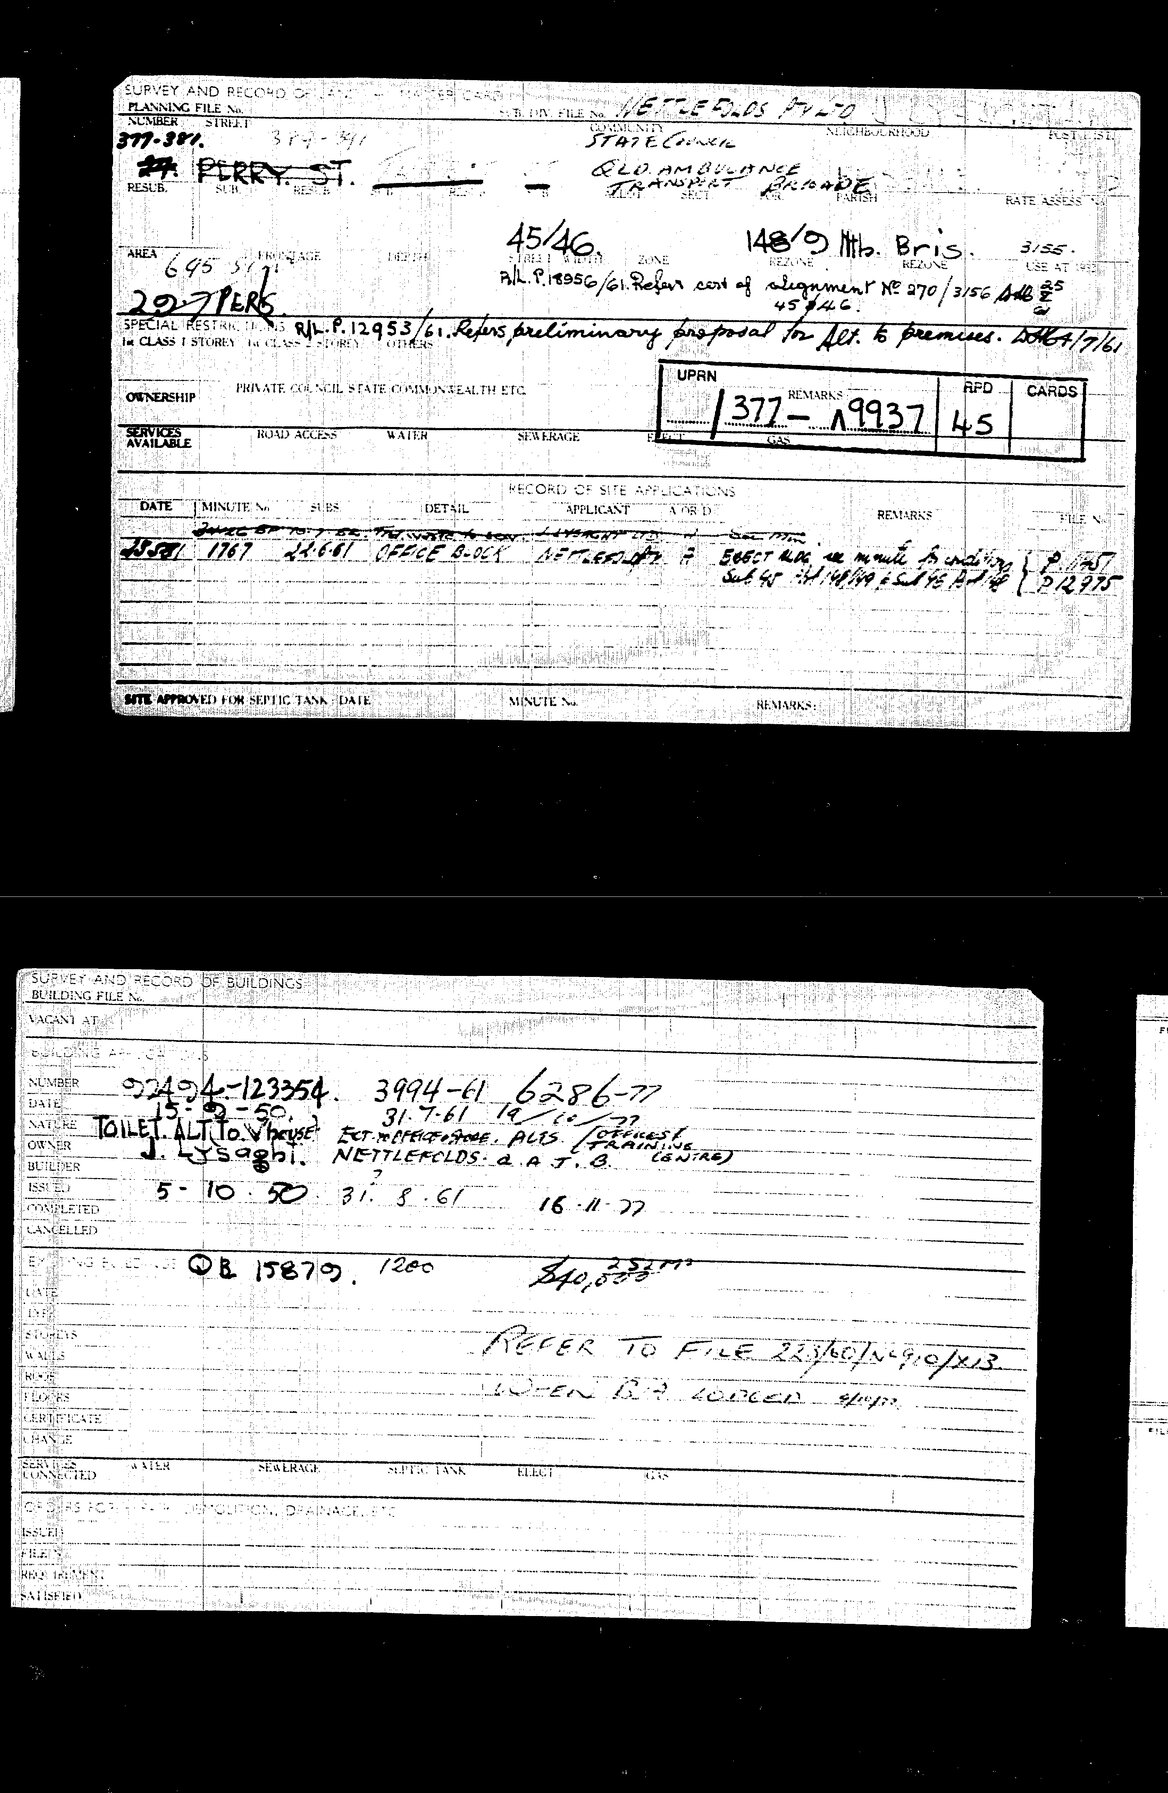 SURVEY AND RECORD OF LAND — MASTER CARD
PLANNING FILE No. SUB. DIV. FILE No. NETTLEFOLDS PTY LTD
NUMBER STREET COMMUNITY NEIGHBOURHOOD POST DIST.
377-381. STATE COUNCIL
PERRY. ST. QLD. AMBULANCE
TRANSPORT BRIGADE
RESUB. SUB. RESUB. SUB. SECT. POR. PARISH RATE ASSESS No.
45/46. 148/9 Nth. Bris. 3155.
AREA FRONTAGE DEPTH STREET WIDTH ZONE REZONE REZONE USE AT
695
R/L.P.18956/61. Refers cert of alignment No 270/3156
45 & 46.
29.7 PERS.
SPECIAL RESTRICTIONS R/L.P.12953/61. Refers preliminary proposal for Alt. to premises. 4/7/61
1st CLASS 1 STOREY 1st CLASS 2 STOREY OTHERS
OWNERSHIP PRIVATE COUNCIL STATE COMMONWEALTH ETC.
UPRN REMARKS RPD CARDS
377 — 9937 45
SERVICES AVAILABLE ROAD ACCESS WATER SEWERAGE ELECT GAS
RECORD OF SITE APPLICATIONS
DATE MINUTE No SUBS. DETAIL APPLICANT A OR D REMARKS FILE No.
1767 22.6.61 OFFICE BLOCK NETTLEFOLDS ERECT BLDG see minute for conditions P 11451
Sub 45 148/149 & Sub 46 P 12975
SITE APPROVED FOR SEPTIC TANK: DATE MINUTE No. REMARKS:
SURVEY AND RECORD OF BUILDINGS
BUILDING FILE No.
VACANT AT
BUILDING APPLICATIONS
NUMBER 92494-123354. 3994-61 6286-77
DATE 15-9-50. 31.7.61 19/10/77
NATURE TOILET. ALT. TO. W'house ALTS. (OFFICES/
TRAINING
OWNER J. Lysaght. NETTLEFOLDS. Q. A. T. B. CENTRE)
BUILDER
ISSUED 5-10.50. 31.8.61 16.11.77
COMPLETED
CANCELLED
EXISTING BUILDINGS QB 15879. 1200 $40,000 252 m²
DATE
TYPE
STOREYS
WALLS REFER TO FILE 223/60/N6910/X13
ROOF
FLOORS WHEN B.A LODGED
CERTIFICATE
CHANGE
SERVICES CONNECTED WATER SEWERAGE SEPTIC TANK ELECT GAS
ORDERS FOR REPAIR, DEMOLITION, DRAINAGE, ETC
ISSUED
FILE No.
REQUIREMENT
SATISFIED